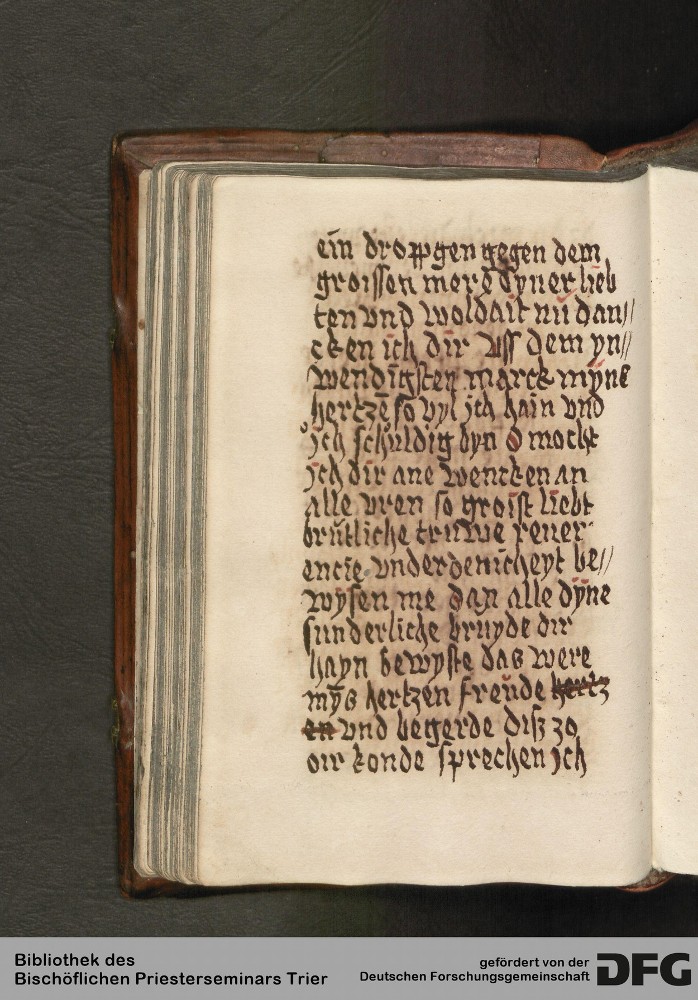 ein droppgen gegen dem
groissen mere dyner lieb
ten vnd woldait nu dan//
cken ich dir vss dem yn//
wendigsten marck myne
hertzē so vyl ich hain vnd
ich schuldig byn o mocht
ich dir ane wencken an
alle vren so groist liebt
brutliche truwe reuer
encie vnderdenicheyt be//
wysen me dan alle dyne
sunderliche bruyde dir
hayn bewyste das were
mȳs hertzen freude hertz
en vnd begerde disz zo
dir konde sprechen ich
Bibliothek des
Bischöflichen Priesterseminars Trier
gefördert von der
Deutschen Forschungsgemeinschaft DFG